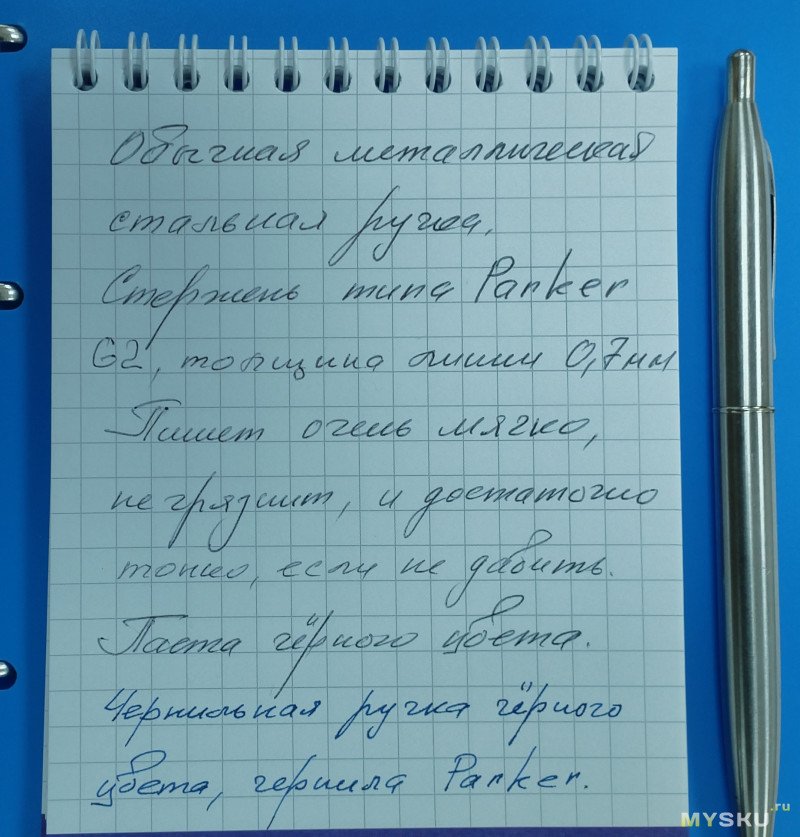 Обычная металлическая
стальная ручка.
Стержень типа Parker
G2, толщина линии 0,7мм
Пишет очень мягко,
не грязнит, и достаточно
тонко, если не давить.
Паста чёрного цвета.
Чернильная ручка чёрного
цвета, чернила Parker.
MYSKU.ru